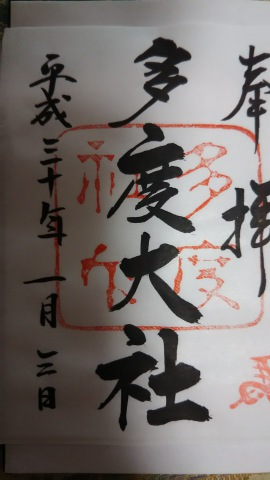 奉拝
多度大社
平成三十年一月三日
多度